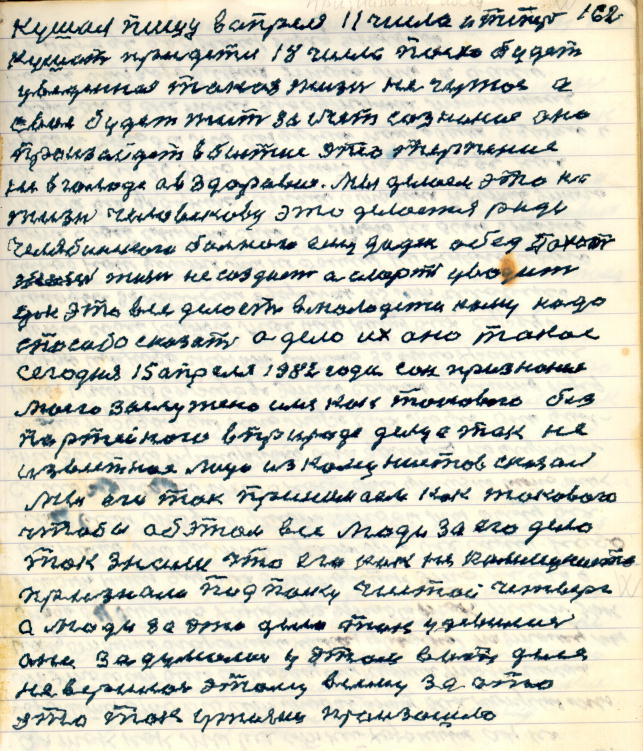 кушал пищу в апреля 11 числа а типер 162
кушат придети 18 числа паска будет
уведенная такая жизн не чужое а
свае будет жит за счет сознание ано
праизайдет в бытие это терпение
ни в голоде а в здоравие. Мы делаем это на
жизн чилавекову это делается ради
челябинкого болного ему дадж обед
жизн не создает а смерт уводит
это все делости в молодежи кому надо
спасибо сказат а дело их ано такое
сегодня 15 апреля 1982 года сон признание
моего заслужено имя как токового без
партейного в природе делае так не
известное лицо из комунистов сказал
мы его так принимаем как токового
чтобы об этом все люди за его дело
так знали что его как не комунисто
признали под паску чистой четверг
а люди за это дело так удевилис
ани задумалис у этом вот дела
не верится этому всему за это
это так утряни праизашло